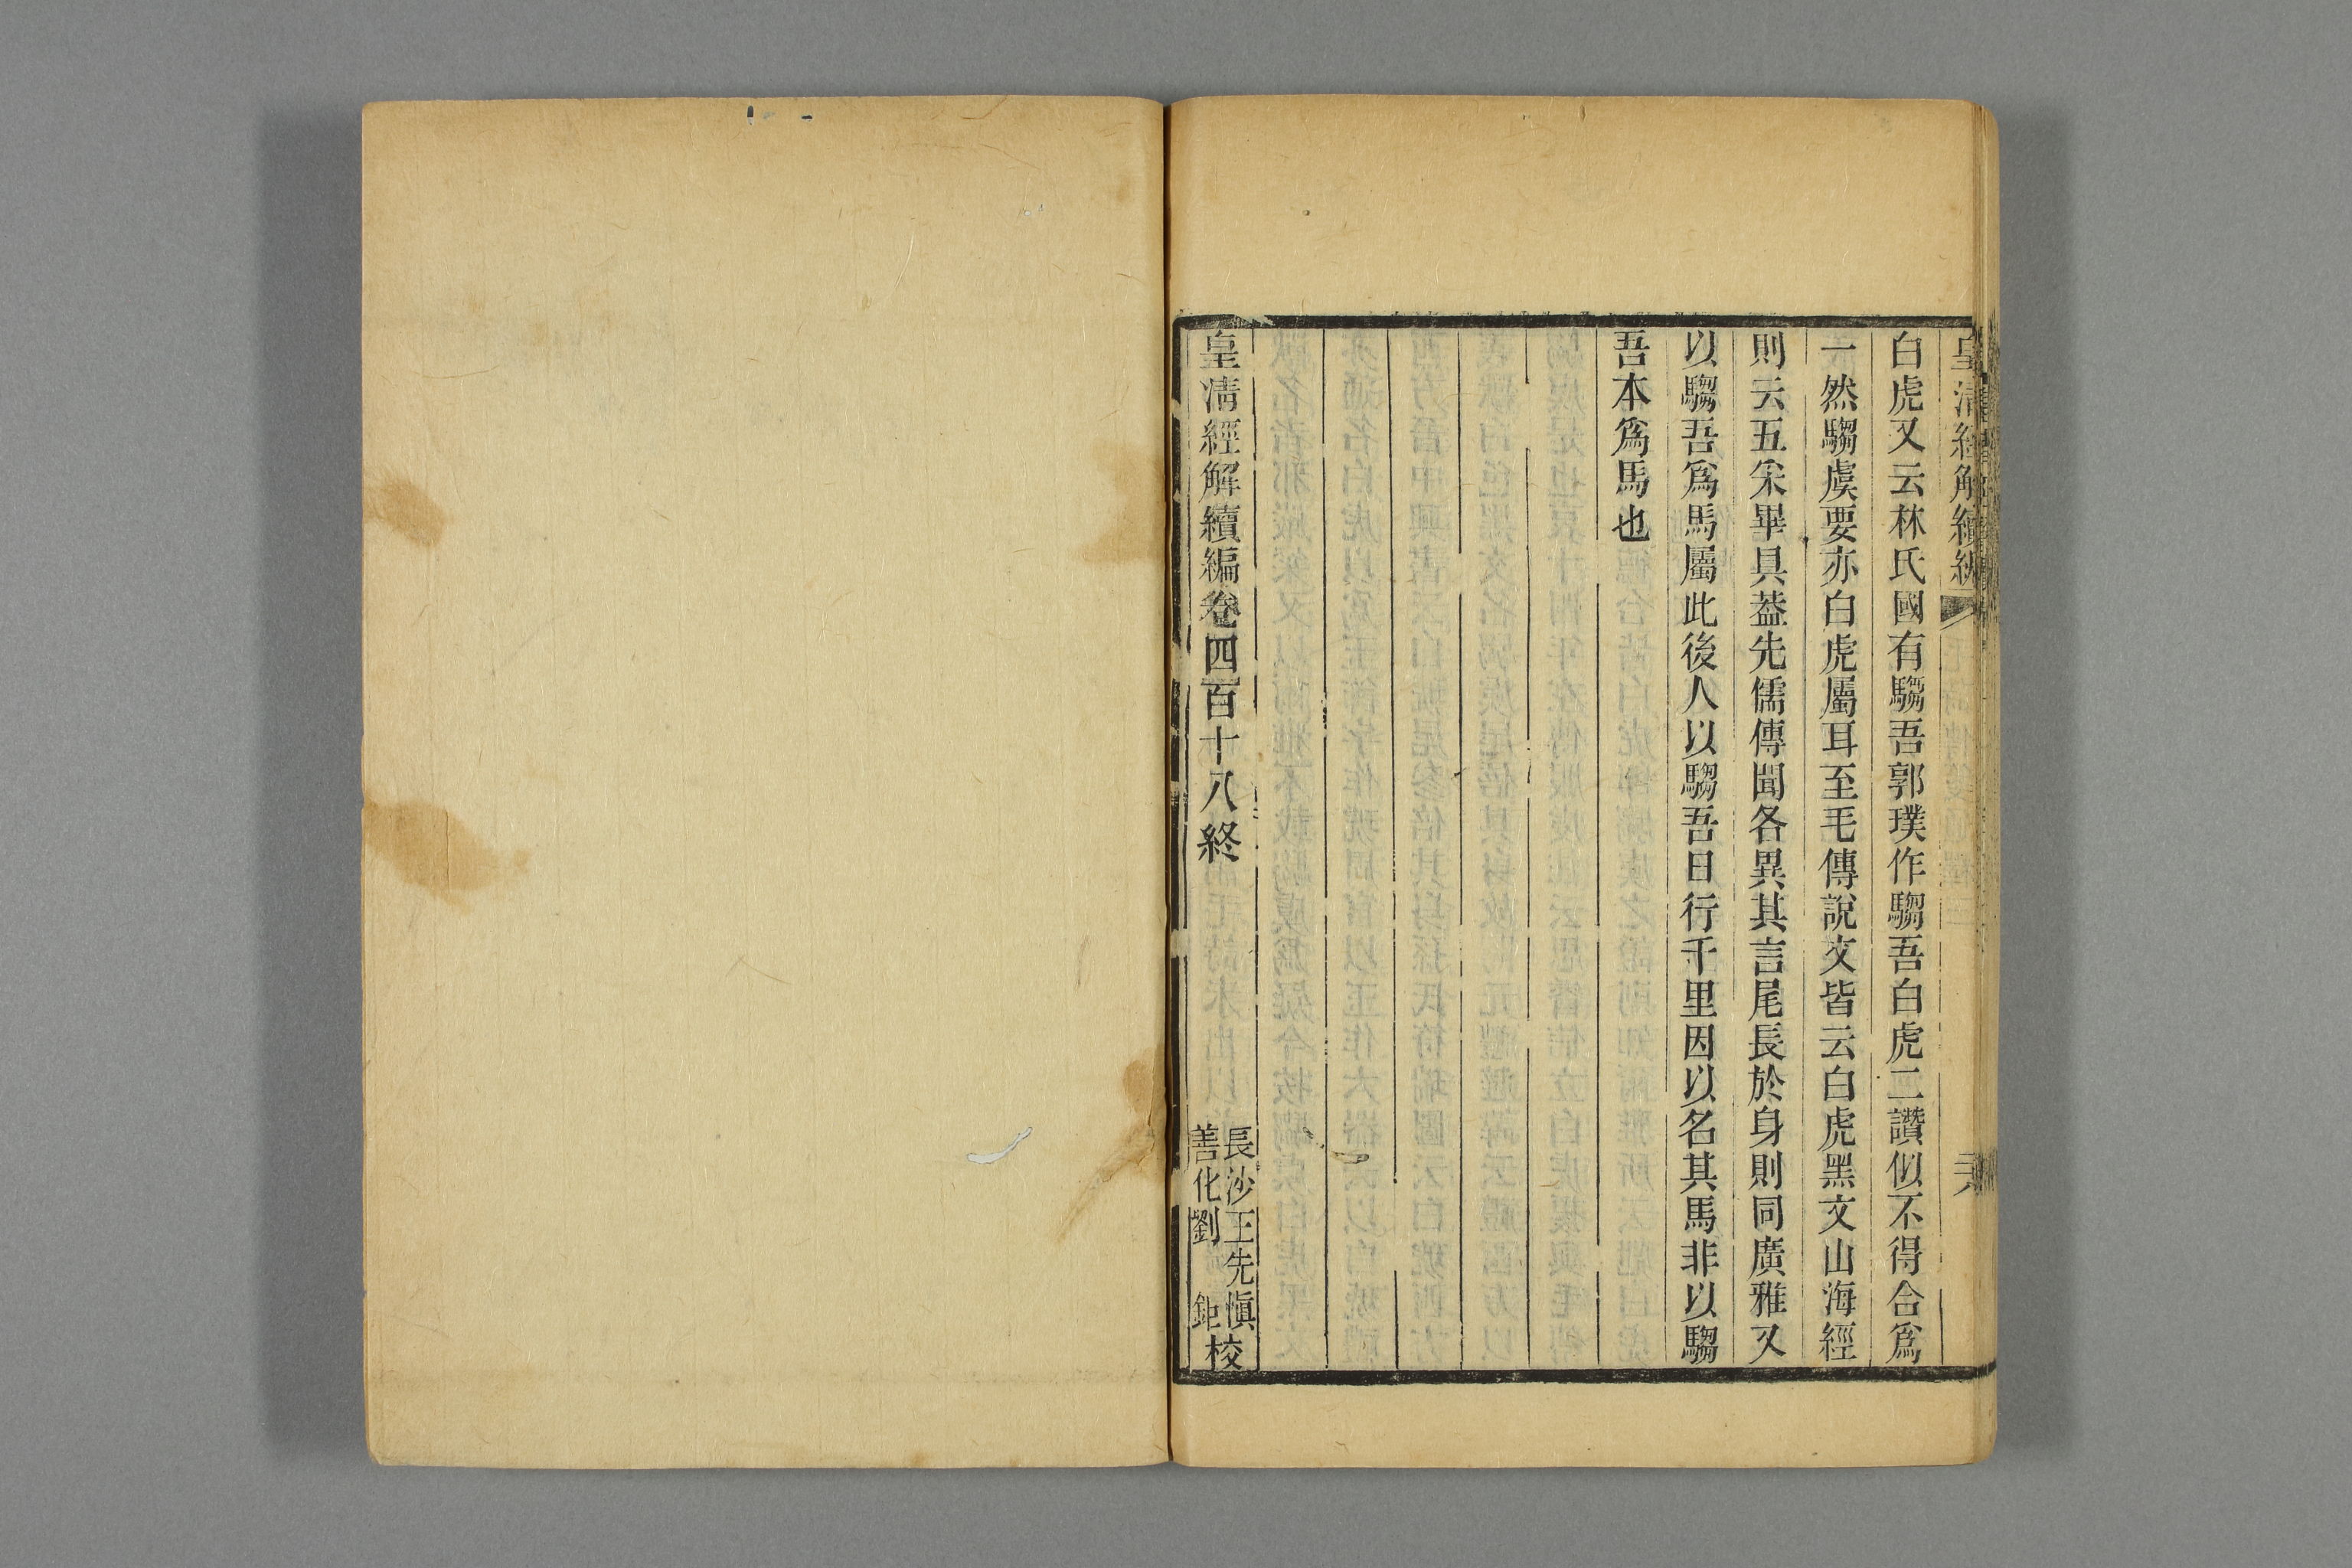 皇清經解續編
白虎又云林氏國有騶吾郭璞作騶吾白虎二讚似不得合爲
一然騶虞要亦白虎屬耳至毛傳說文皆云白虎黑文山海經
則云五采畢具葢先儒傳聞各異其言尾長於身則同廣雅又
以騶吾爲馬屬此後人以騶吾日行千里因以名其馬非以騶
吾本爲馬也
皇清經解續編卷四百十八終
長沙王先愼
善化劉鉅
校